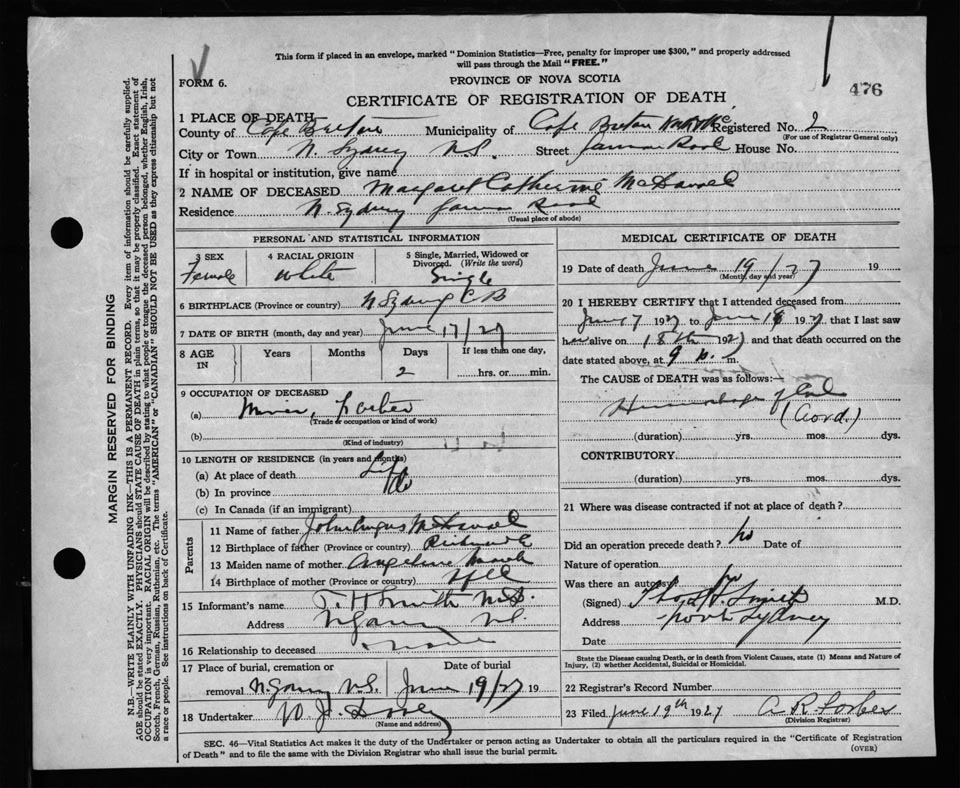 This form if placed in an envelope, marked "Dominion Statistics—Free, penalty for improper use $300," and properly addressed
will pass through the Mail "FREE."
FORM 6.
PROVINCE OF NOVA SCOTIA
476
CERTIFICATE OF REGISTRATION OF DEATH
1 PLACE OF DEATH
County of Cape Breton Municipality of Cape Breton Registered No. 2
(For use of Registrar General only)
City or Town N. Sydney N.S. Street Road House No.
If in hospital or institution, give name
2 NAME OF DECEASED Margaret Catherine
Residence N. Sydney Road
(Usual place of abode)
PERSONAL AND STATISTICAL INFORMATION
3 SEX 4 RACIAL ORIGIN 5 Single, Married, Widowed or
Divorced. (Write the word)
Female White Single
6 BIRTHPLACE (Province or country) N Sydney C B
7 DATE OF BIRTH (month, day and year) June 17/27
8 AGE IN Years Months Days If less than one day,
2 hrs. or min.
9 OCCUPATION OF DECEASED
(a)
(Trade or occupation or kind of work)
(b)
(Kind of industry)
10 LENGTH OF RESIDENCE (in years and months)
(a) At place of death Life
(b) In province do
(c) In Canada (if an immigrant)
Parents
11 Name of father John Angus
12 Birthplace of father (Province or country)
13 Maiden name of mother Angeline
14 Birthplace of mother (Province or country) Nfld
15 Informant's name T. H Smith M.D.
Address N. S.
16 Relationship to deceased none
17 Place of burial, cremation or Date of burial
removal N. Sydney N.S. June 19/27 19
18 Undertaker W. J.
(Name and address)
MEDICAL CERTIFICATE OF DEATH
19 Date of death June 19/27 19
(Month, day and year)
20 I HEREBY CERTIFY that I attended deceased from
June 17 1927 to June 18 1927, that I last saw
her alive on 18th 1927 and that death occurred on the
date stated above, at 9 m.
The CAUSE of DEATH was as follows:
Hemorrhage of Cord
(Cord.)
(duration) yrs. mos. dys.
CONTRIBUTORY
(duration) yrs. mos. dys.
21 Where was disease contracted if not at place of death?
Did an operation precede death? No Date of
Nature of operation
Was there an autopsy No
(Signed) Thos H. Smith M.D.
Address North Sydney
Date
State the Disease causing Death, or in death from Violent Causes, state (1) Means and Nature of
Injury, (2) whether Accidental, Suicidal or Homicidal.
22 Registrar's Record Number
23 Filed June 19th 1927 A. R. Forbes
(Division Registrar)
SEC. 46—Vital Statistics Act makes it the duty of the Undertaker or person acting as Undertaker to obtain all the particulars required in the "Certificate of Registration
of Death" and to file the same with the Division Registrar who shall issue the burial permit.
(OVER)
MARGIN RESERVED FOR BINDING
N.B.—WRITE PLAINLY WITH UNFADING INK—THIS IS A PERMANENT RECORD. Every item of information should be carefully supplied.
AGE should be stated EXACTLY. PHYSICIANS should STATE CAUSE OF DEATH in plain terms, so that it may be properly classified. Exact statement of
OCCUPATION is very important. RACIAL ORIGIN will be described by stating to what people or tongue the deceased person belonged, whether English, Irish,
Scotch, French, German, Russian, Ruthenian, etc. The terms "AMERICAN" or "CANADIAN" SHOULD NOT BE USED as they express citizenship but not
a race or people. See instructions on back of Certificate.